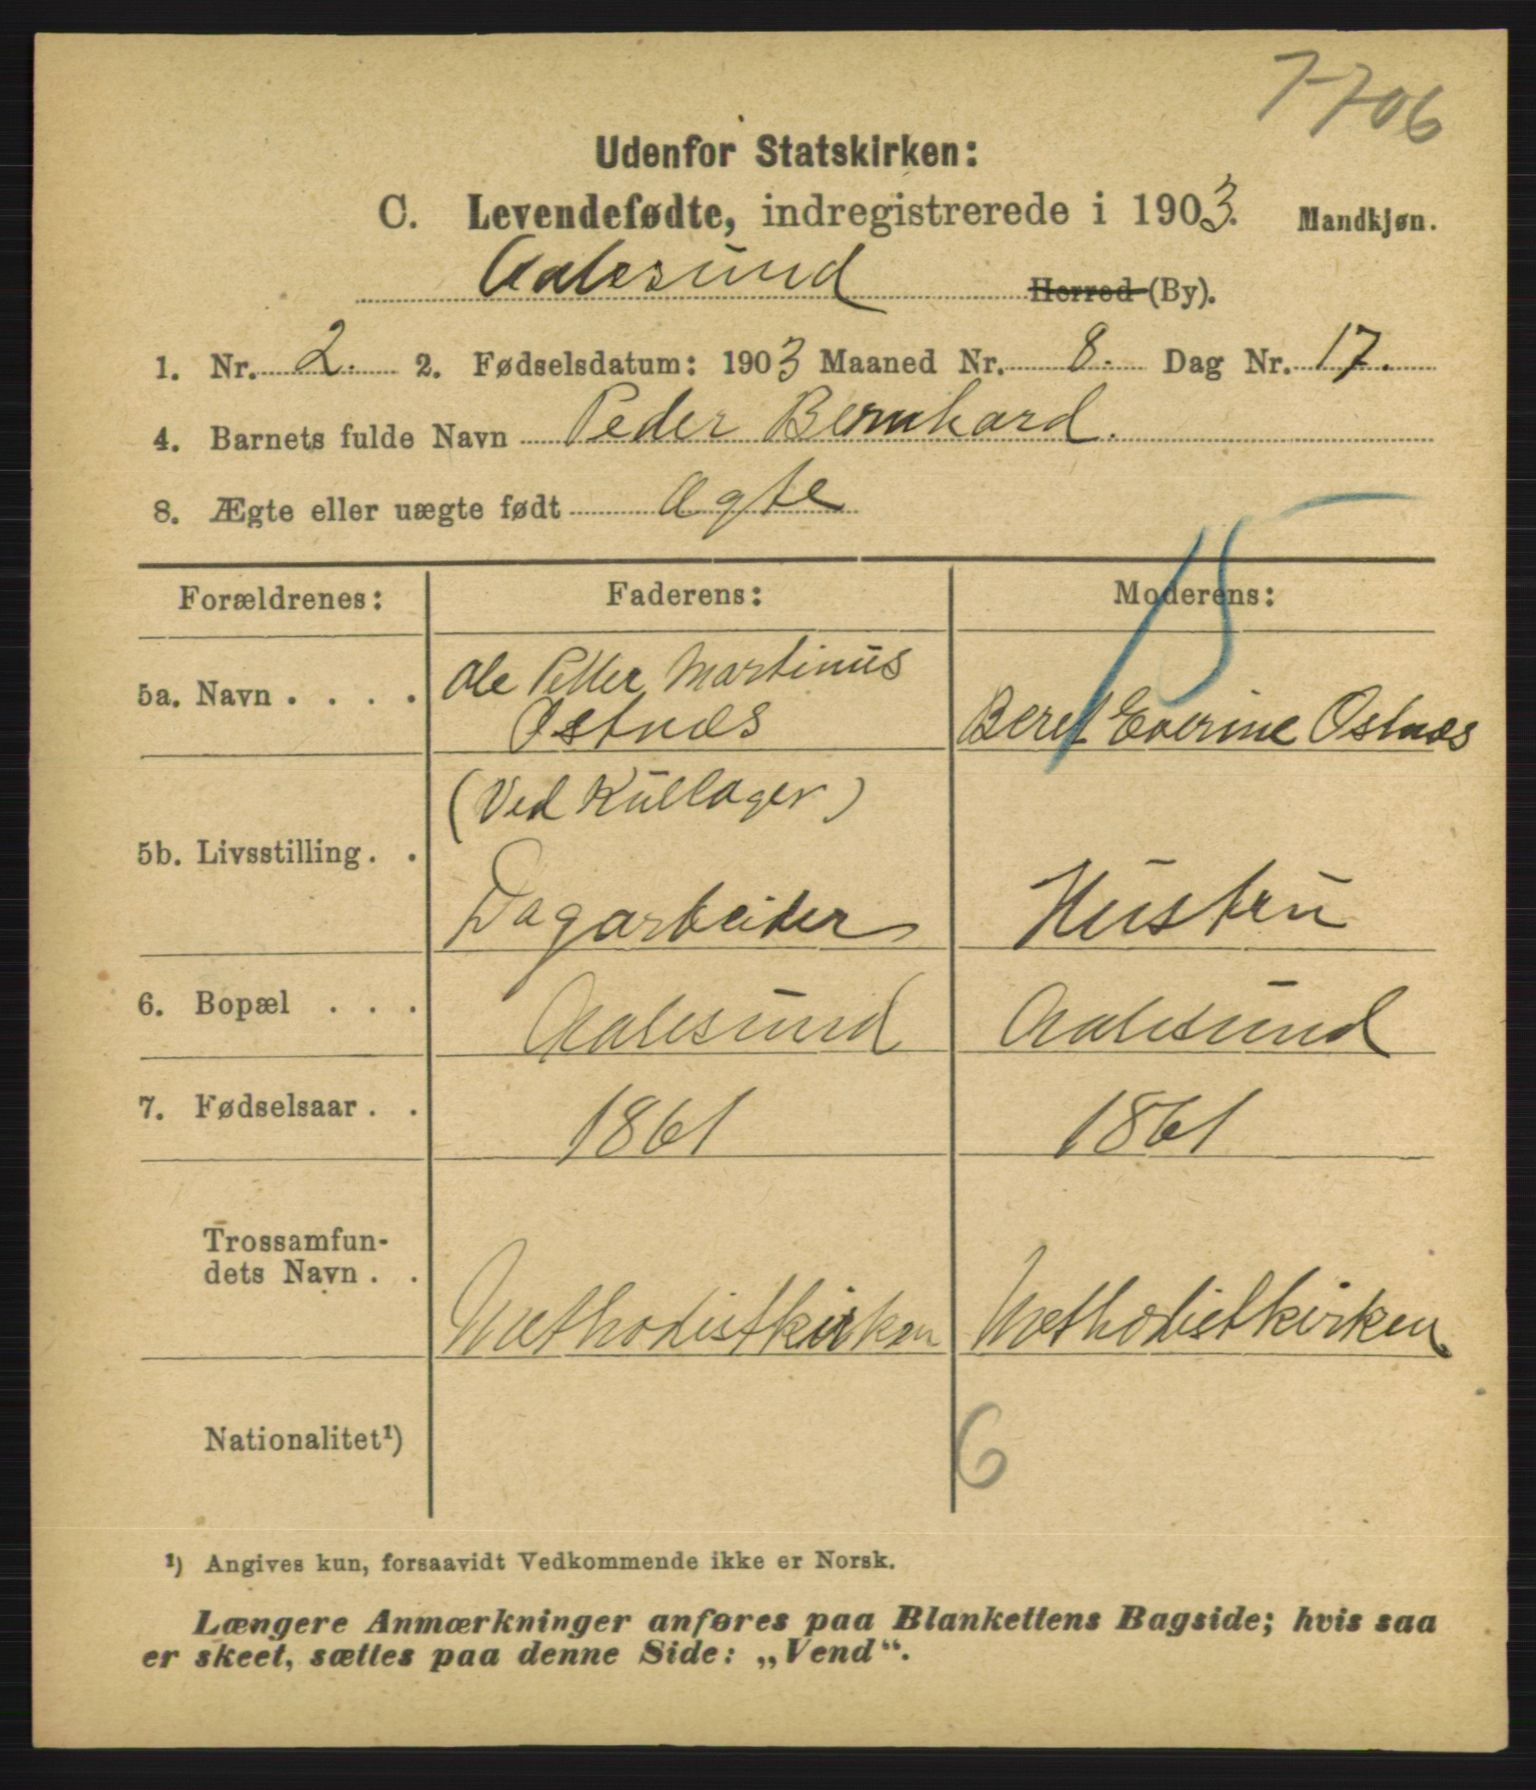 7-706
Udenfor Statskirken:
C. Levendefødte, indregistrerede i 1903. Mandkjøn.
Aalesund Herred (By).
1. Nr. 2. 2. Fødselsdatum: 1903 Maaned Nr. 8. Dag Nr. 17.
4. Barnets fulde Navn Peder Bernhard.
8. Ægte eller uægte født Ægte
15
Forældrenes: Faderens: Moderens:
5a. Navn . . . . Ole Petter Martinus
Ostnæs Beret Everine Ostnæs
(Ved Kullager)
5b. Livsstilling . .
Dagarbeider Hustru
6. Bopæl . . . Aalesund Aalesund
7. Fødselsaar . . 1861 1861
Trossamfun-
dets Navn . .
Methodistkirken Methodistkirken
Nationalitet¹)
6
¹) Angives kun, forsaavidt Vedkommende ikke er Norsk.
Længere Anmærkninger anføres paa Blankettens Bagside; hvis saa
er skeet, sættes paa denne Side: „Vend“.